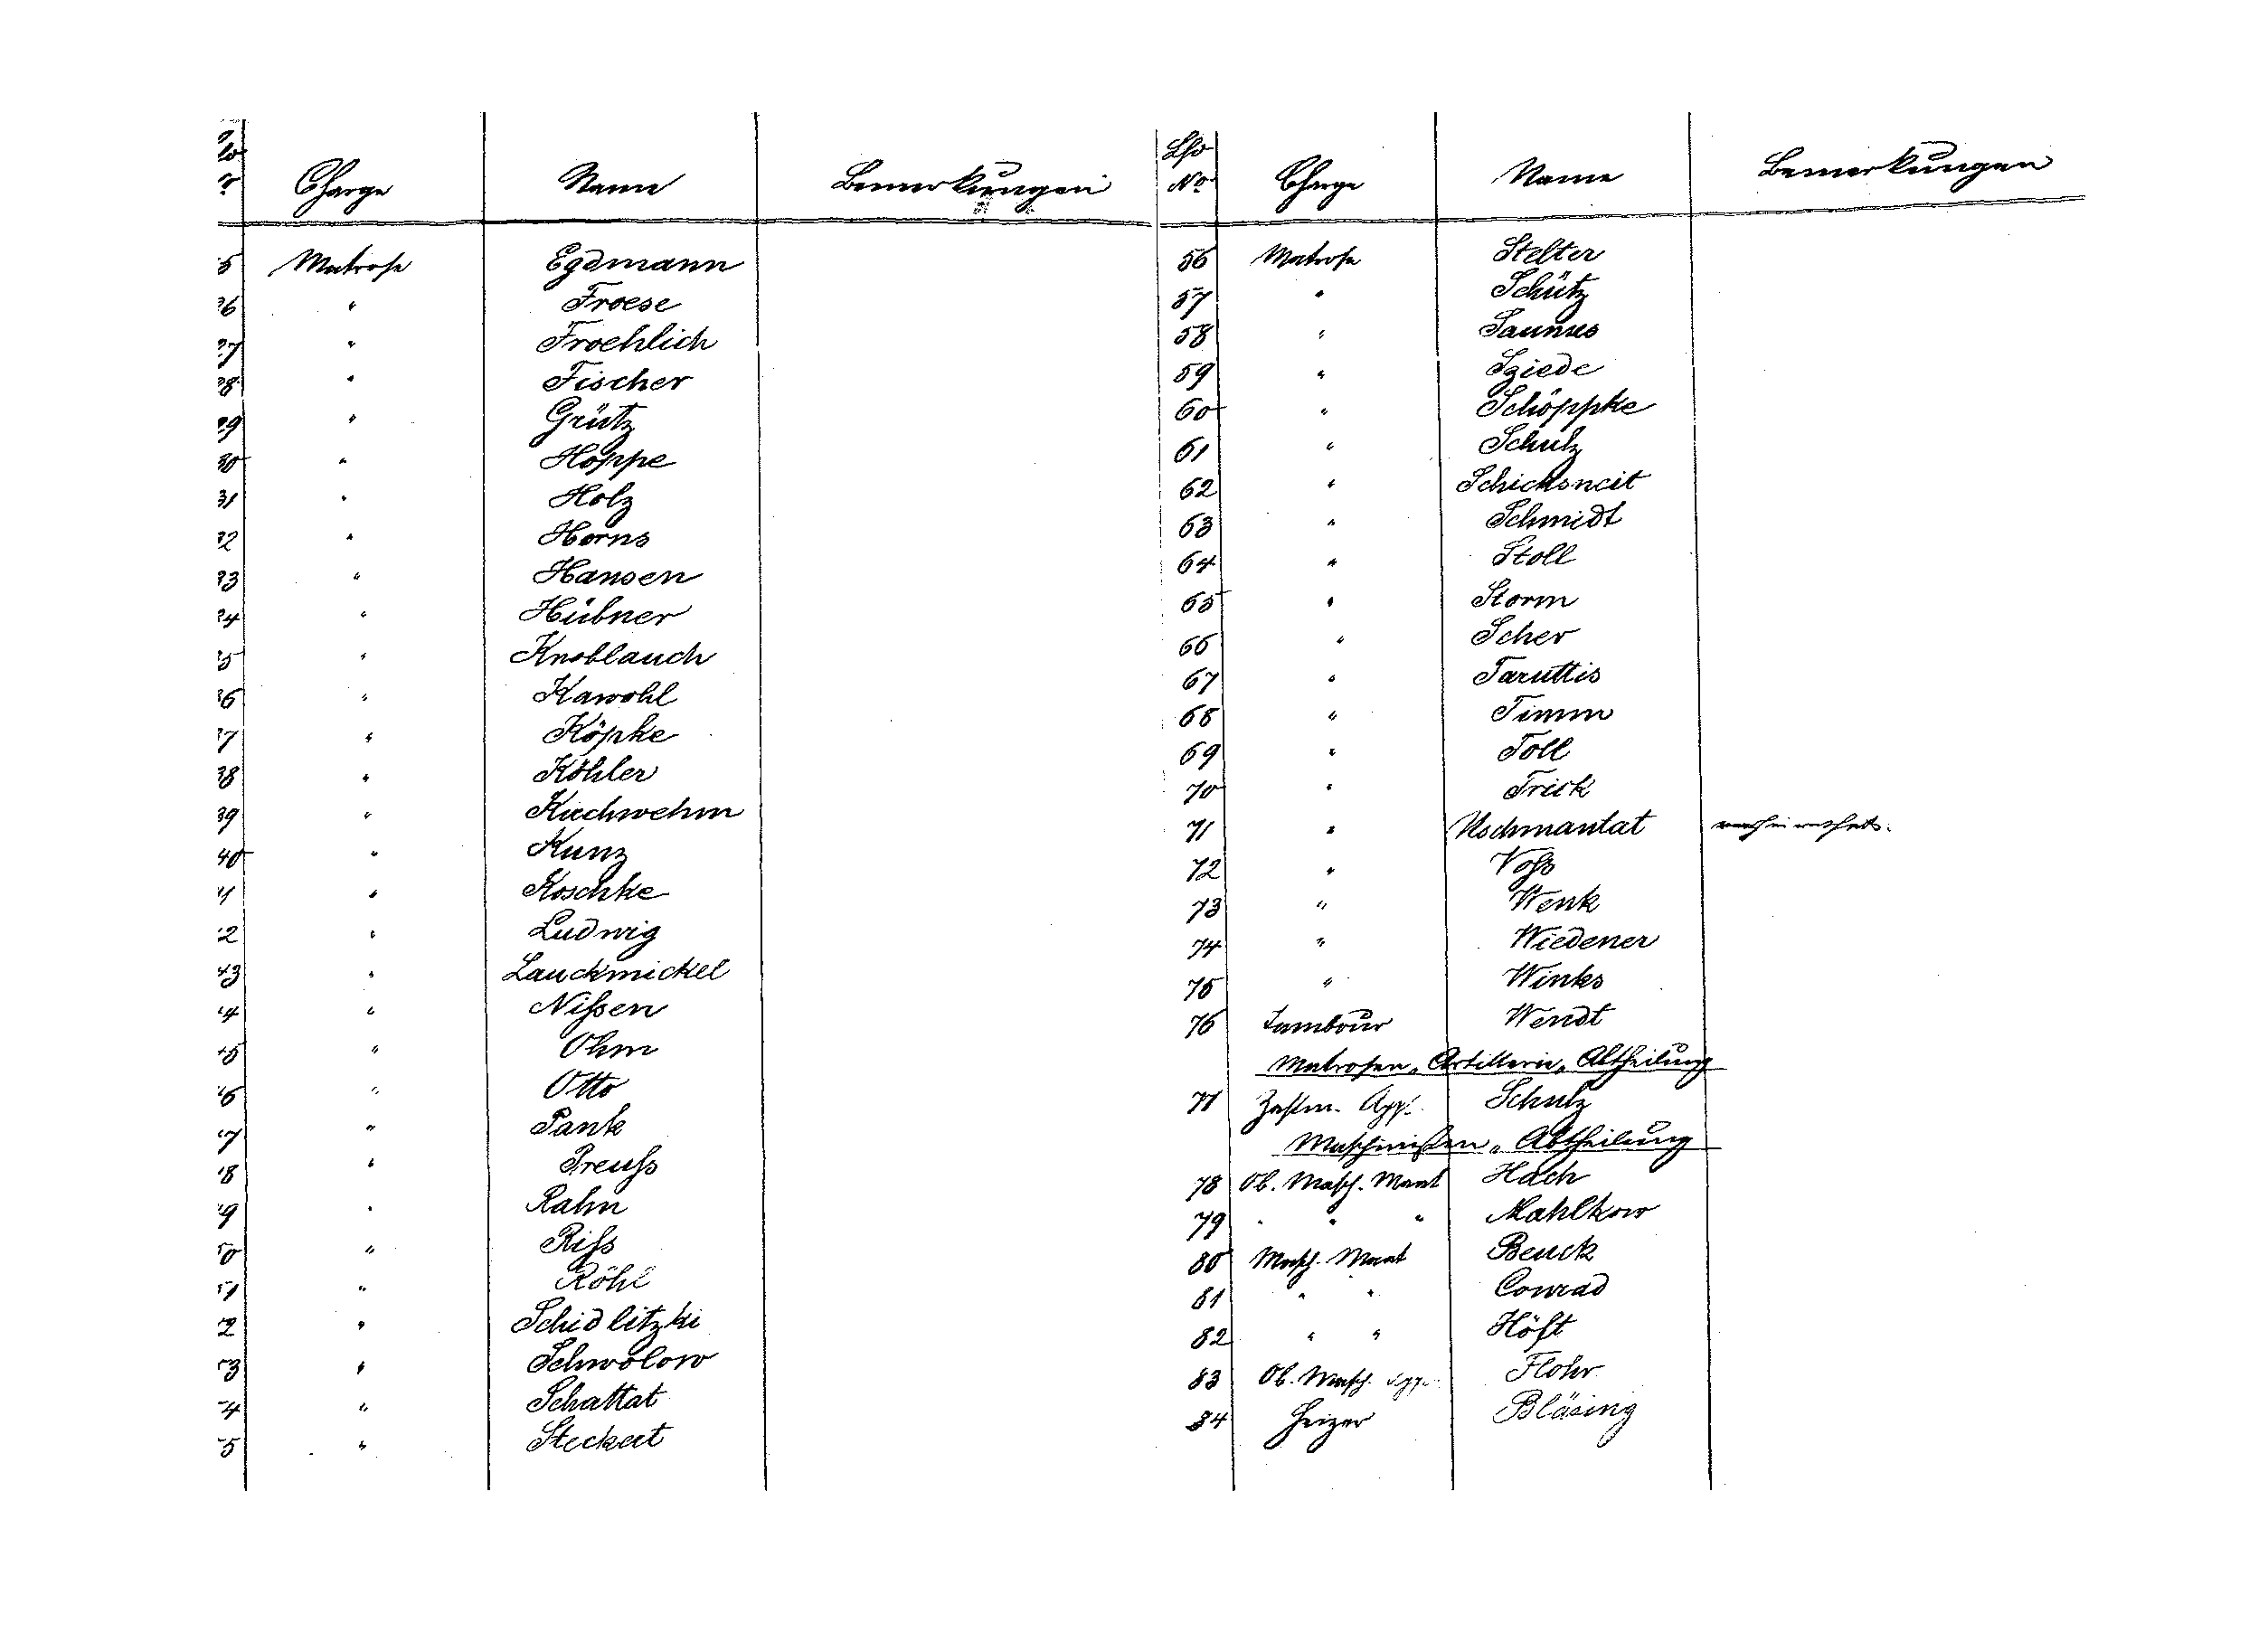 Charge Name Bemerkungen
5 Matrose Egdmann
26 " Froese
27 " Froehlich
28 " Fischer
29 " Grütz
30 " Hoppe
31 " Holz
32 " Horns
33 " Hansen
34 " Hübner
35 " Knoblauch
36 " Kawohl
37 " Köpke
38 " Köhler
39 " Kirchwehm
40 " Kunz
41 " Koschke
42 " Ludwig
43 " Lauckmickel
44 " Nißen
45 " Ohm
46 " Otto
47 " Pank
48 " Preuß
49 " Rahn
50 " Riß
51 " Röhl
52 " Schidlitzki
53 " Schwolow
54 " Schattat
55 " Steckert
Lfd No. Charge Name Bemerkungen
56 Matrose Stelter
57 " Schütz
58 " Saunus
59 " Sziede
60 " Schöppke
61 " Schulz
62 " Schicksneit
63 " Schmidt
64 " Stoll
65 " Storm
66 " Scher
67 " Taruttis
68 " Timm
69 " Toll
70 " Trick
71 " Uschmantat
72 " Voß
73 " Wenk
74 " Wiedener
75 " Winks
76 Tambour Wendt
Matrosen-Artillerie-Abtheilung
77 Zahlm. Appl. Schulz
Maschinisten-Abtheilung
78 Ob. Masch. Maat Hach
79 " " " Mahlkow
80 Masch. Maat Beuck
81 " " Conrad
82 " " Höft
83 Ob. Masch. Flohr
84 Heizer Bläsing